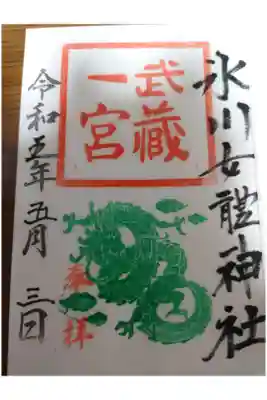 氷川女體神社
武蔵
一宮
奉拝
令和五年五月三日